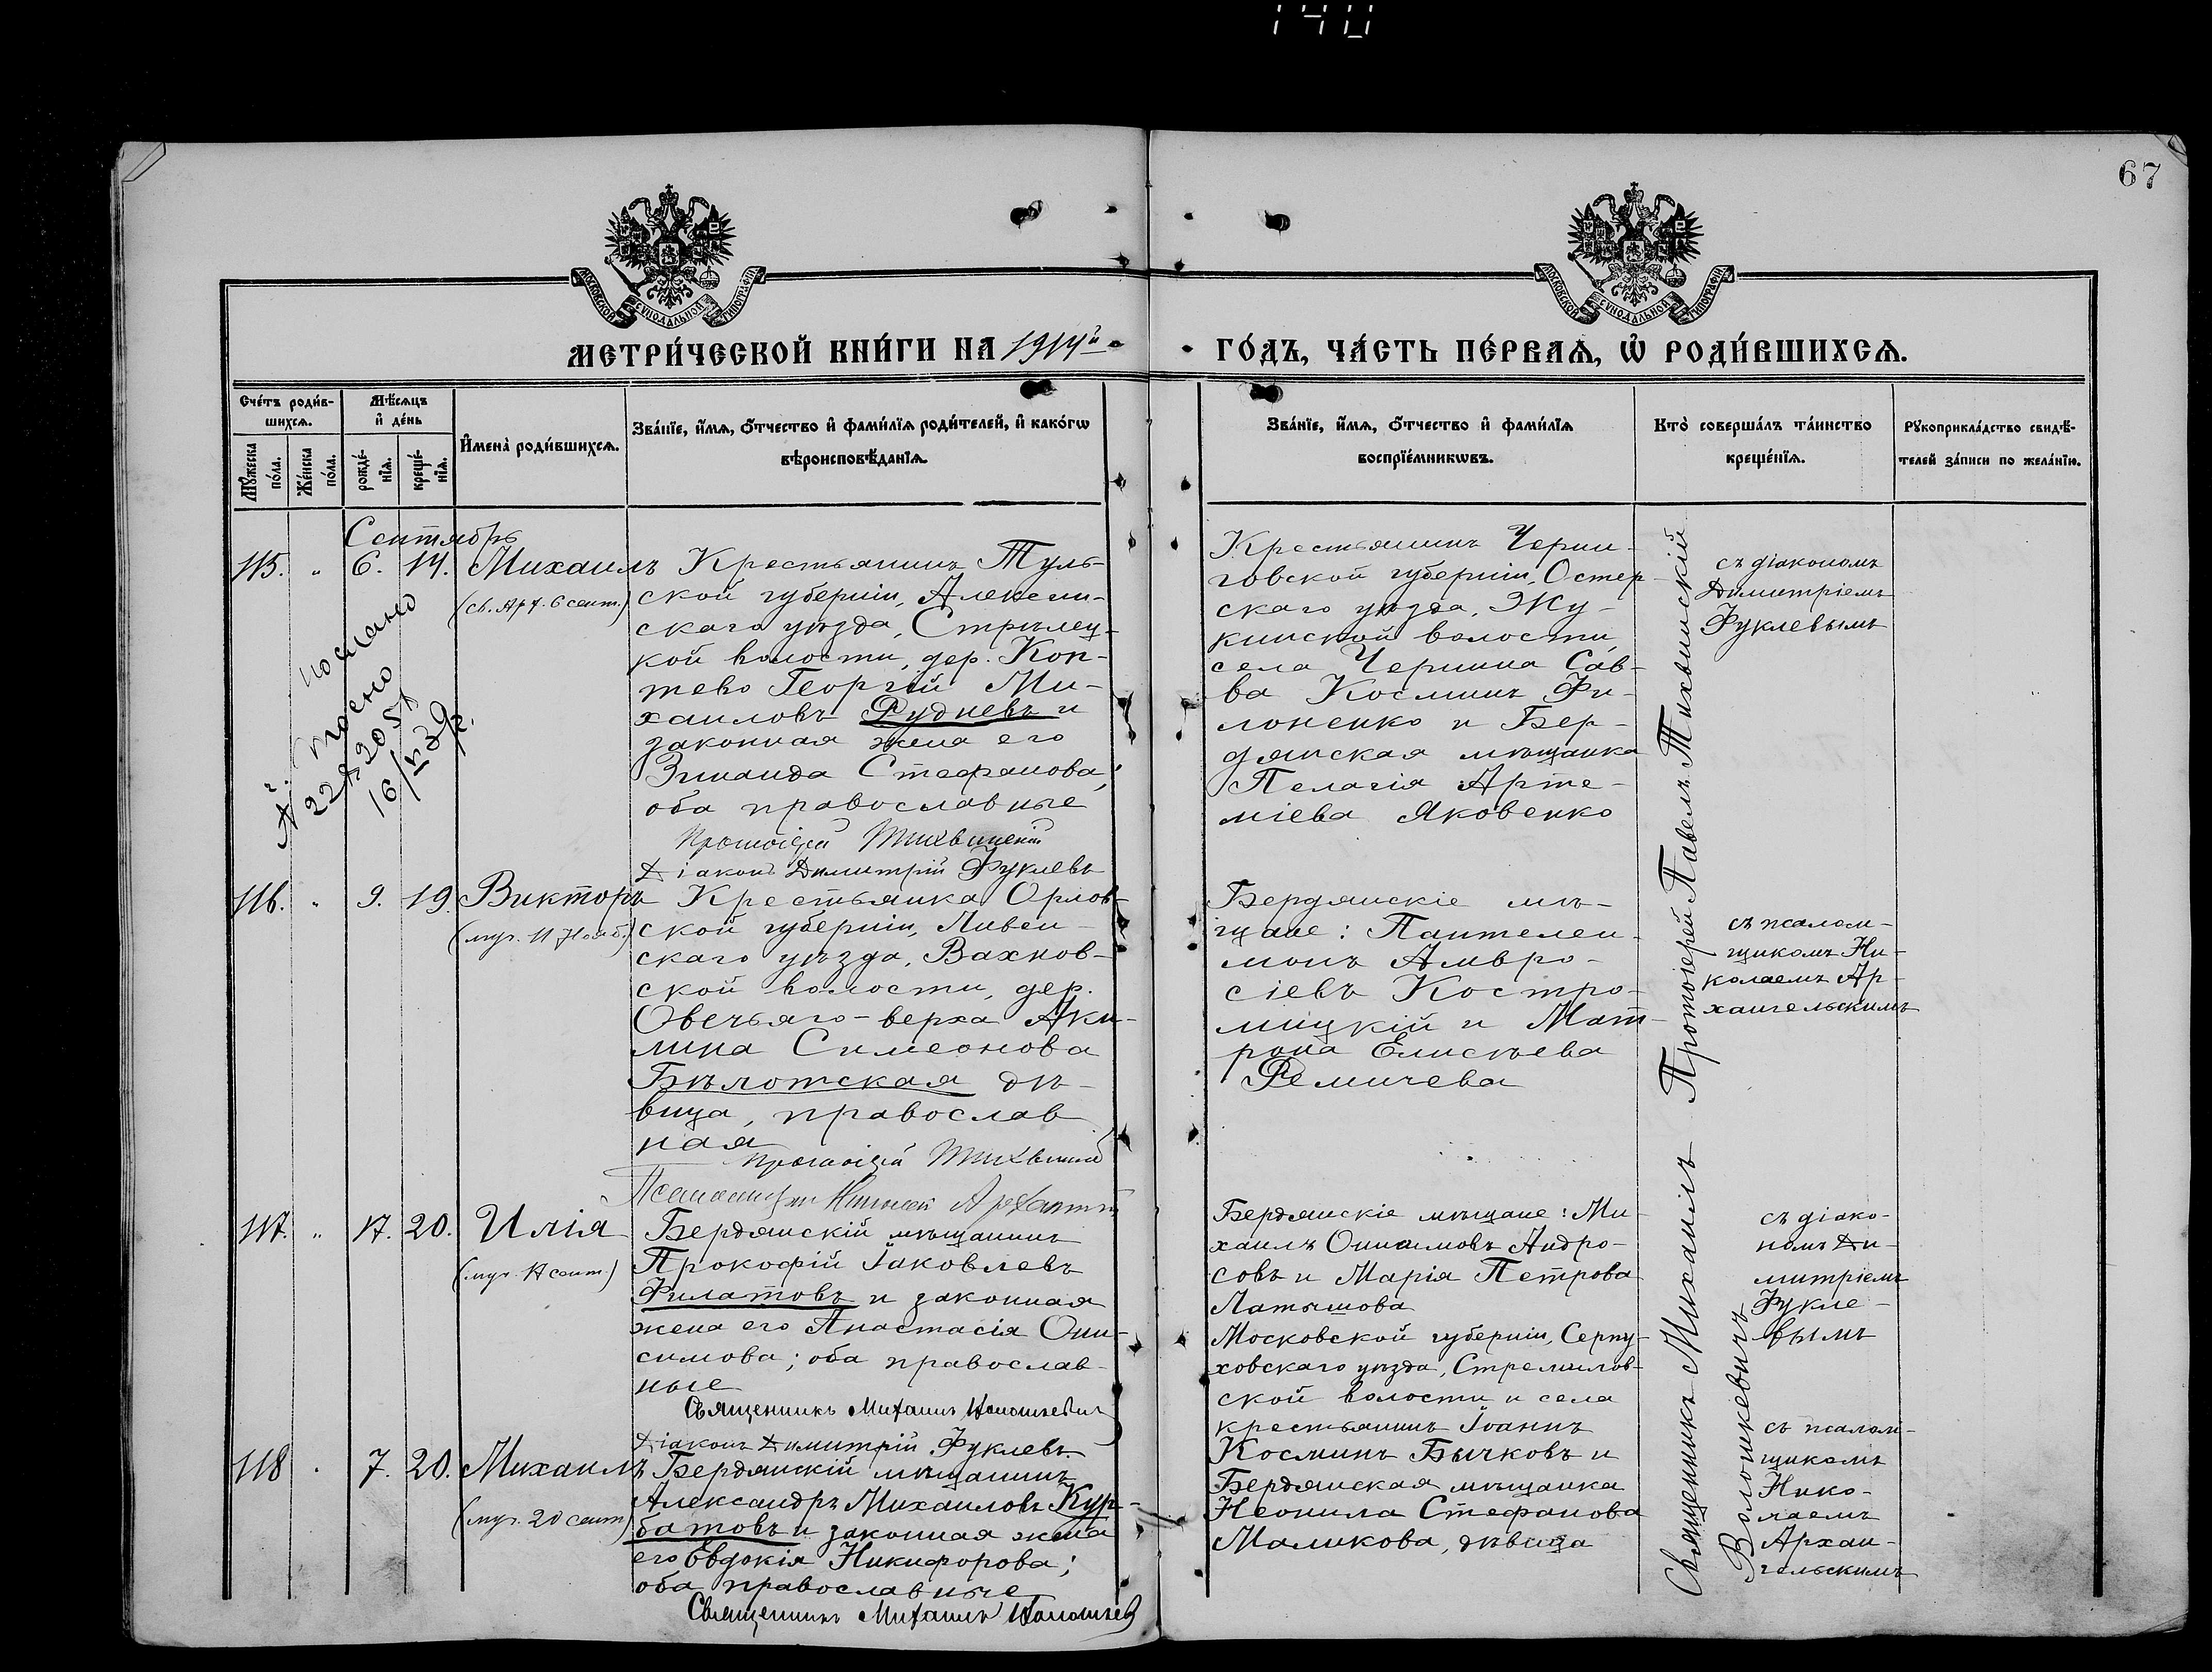 140
67
МОСКОВСКОЙ СУНОДАЛЬНОЙ ТИПОГРАФІИ
МОСКОВСКОЙ СУНОДАЛЬНОЙ ТИПОГРАФІИ
МЕТРИ́ЧЕСКОЙ КНИ́ГИ НА 1914й
ГО́ДЪ, ЧА́СТЬ ПЕ́РВАѦ, Ѡ҆ РОДИ́ВШИХСѦ.
Сче́тъ роди́в-
шихсѧ.
Мѣ́сѧцъ
и҆ де́нь
Мꙋ́жеска
по́ла.
Же́нска
по́ла.
рожде́-
нїѧ.
креще́-
нїѧ.
И҆мена̀ роди́вшихсѧ.
Зва́нїе, и҆́мѧ, ѻ҆́тчество и҆ фами́лїѧ роди́телей, и҆ како́гѡ
вѣроисповѣ́данїѧ.
Зва́нїе, и҆́мѧ, ѻ҆́тчество и҆ фами́лїѧ
воспрїе́мникѡвъ.
Кто̀ соверша́лъ та́инство
креще́нїѧ.
Рꙋкоприкла́дство свидѣ́-
телей за́писи по жела́нїю.
Сентябрь
115. " 6. 14. Михаилъ
(св. Арх. 6 сент.)
Крестьянинъ Туль-
ской губерніи, Алексин-
скаго уѣзда, Стрѣлец-
кой волости, дер. Коп-
тево Георгій Ми-
хаиловъ Рудневъ и
законная жена его
Зинаида Стефанова;
оба православные
Протоіерей Тихвинскій
Діаконъ Димитрій Фуклевъ
Крестьянинъ Черни-
говской губерніи, Остер-
скаго уѣзда, Жу-
кинской волости,
села Чернина Сав-
ва Косминъ Фи-
лоненко и Бер-
дянская мѣщанка
Пелагія Арте-
міева Яковенко
Протоіерей Павелъ Тихвинскій
съ діакономъ
Димитріемъ
Фуклевымъ
116. " 9. 19. Викторъ
(муч. 11 Нояб.)
Крестьянка Орлов-
ской губерніи, Ливен-
скаго уѣзда, Вахнов-
ской волости, дер.
Овечьяго-верха Аки-
лина Симеонова
Бѣлотская дѣ-
вица, православ
ная
Протоіерей Тихвинскій
Псаломщикъ Николай Архангельскій
Бердянскіе мѣ-
щане: Пантелеи-
монъ Амвро-
сіевъ Костро-
мицкій и Мат-
рона Елисѣева
Ремичева
съ псалом-
щикомъ Ни-
колаемъ Ар-
хангельскимъ
117. " 17. 20. Илія
(муч. 17 сент.)
Бердянскій мѣщанинъ
Прокофій Іаковлевъ
Филатовъ и законная
жена его Анастасія Они-
симова; оба православ-
ные
Священникъ Михаилъ Волошкевичъ
Діаконъ Димитрій Фуклевъ.
Бердянскіе мѣщане: Ми-
хаилъ Онисимовъ Андро-
совъ и Марія Петрова
Латышова
Священникъ Михаилъ
Волошкевичъ
съ діако-
номъ Ди-
митріемъ
Фукле-
вымъ
118 " 7. 20. Михаилъ
(муч. 20 сент)
Бердянскій мѣщанинъ
Александръ Михаиловъ Кур-
батовъ и законная жена
его Евдокія Никифорова;
оба православные
Священникъ Михаилъ Волошкевичъ
Московской губерніи, Серпу-
ховскаго уѣзда, Стремилов-
ской волости и села
крестьянинъ Іоаннъ
Косминъ Бычковъ и
Бердянская мѣщанка
Неонила Стефанова
Маликова, дѣвица
съ псалом-
щикомъ
Нико-
лаемъ
Архан-
гельскимъ